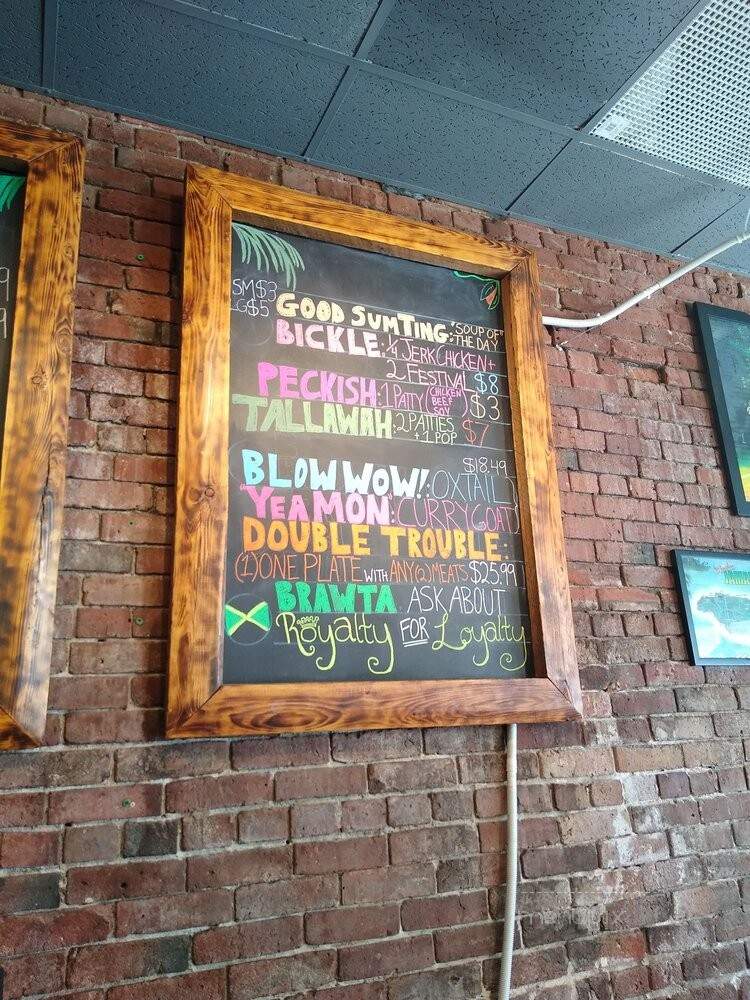 SM$3
LG$5
GOOD SUMTING: "SOUP OF" THE DAY
BICKLE: ¼ JERK CHICKEN +
2 FESTIVAL $8
PECKISH: 1 PATTY (CHICKEN BEEF SOY) $3
TALLAWAH: 2 PATTIES + 1 POP $7
$18.49
BLOW WOW!: OXTAIL
"YEA MON: CURRY GOAT
DOUBLE TROUBLE:
(1) ONE PLATE WITH ANY (2) MEATS $25.99
BRAWTA: ASK ABOUT
Royalty FOR Loyalty